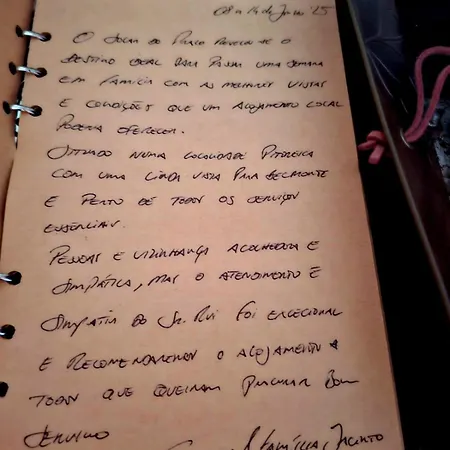 08 a 14 de Julho '25
O Solar do Prado revelou-se o
destino ideal para passar uma semana
em família com as melhores vistas
e condições que um alojamento local
poderia oferecer.
Situado numa localidade pitoresca
com uma linda vista para Belmonte
e perto de todos os serviços
essenciais.
Pessoas e vizinhança acolhedora e
simpática, mas o atendimento e
simpatia do Sr. Rui foi excecional
e recomendaremos o alojamento a
todos que queiram procurar bom
serviço
A família Jacinto